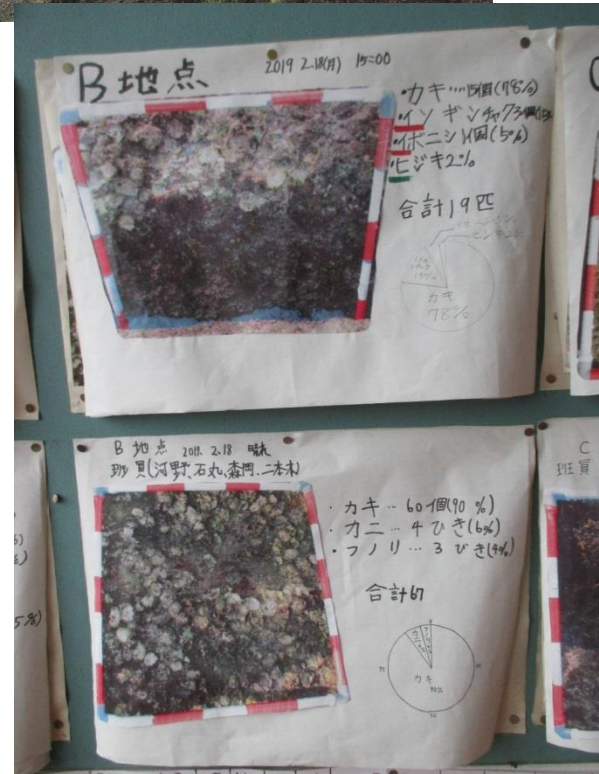 B 地点
2019 2.18(月) 15:00
・カキ…15個(78%)
・イソギンチャク3個(15%
・イボニシ1個(5%)
・ヒジキ2%
合計19匹
カキ
78%
B 地点 2019. 2.18 晴れ
班員(河野、石丸、森岡、二本木)
・カキ… 60個(90 %)
・カニ… 4 ひき(6%)
・フノリ… 3 びき(4%)
合計67
カキ
90%
C
班員
5%)